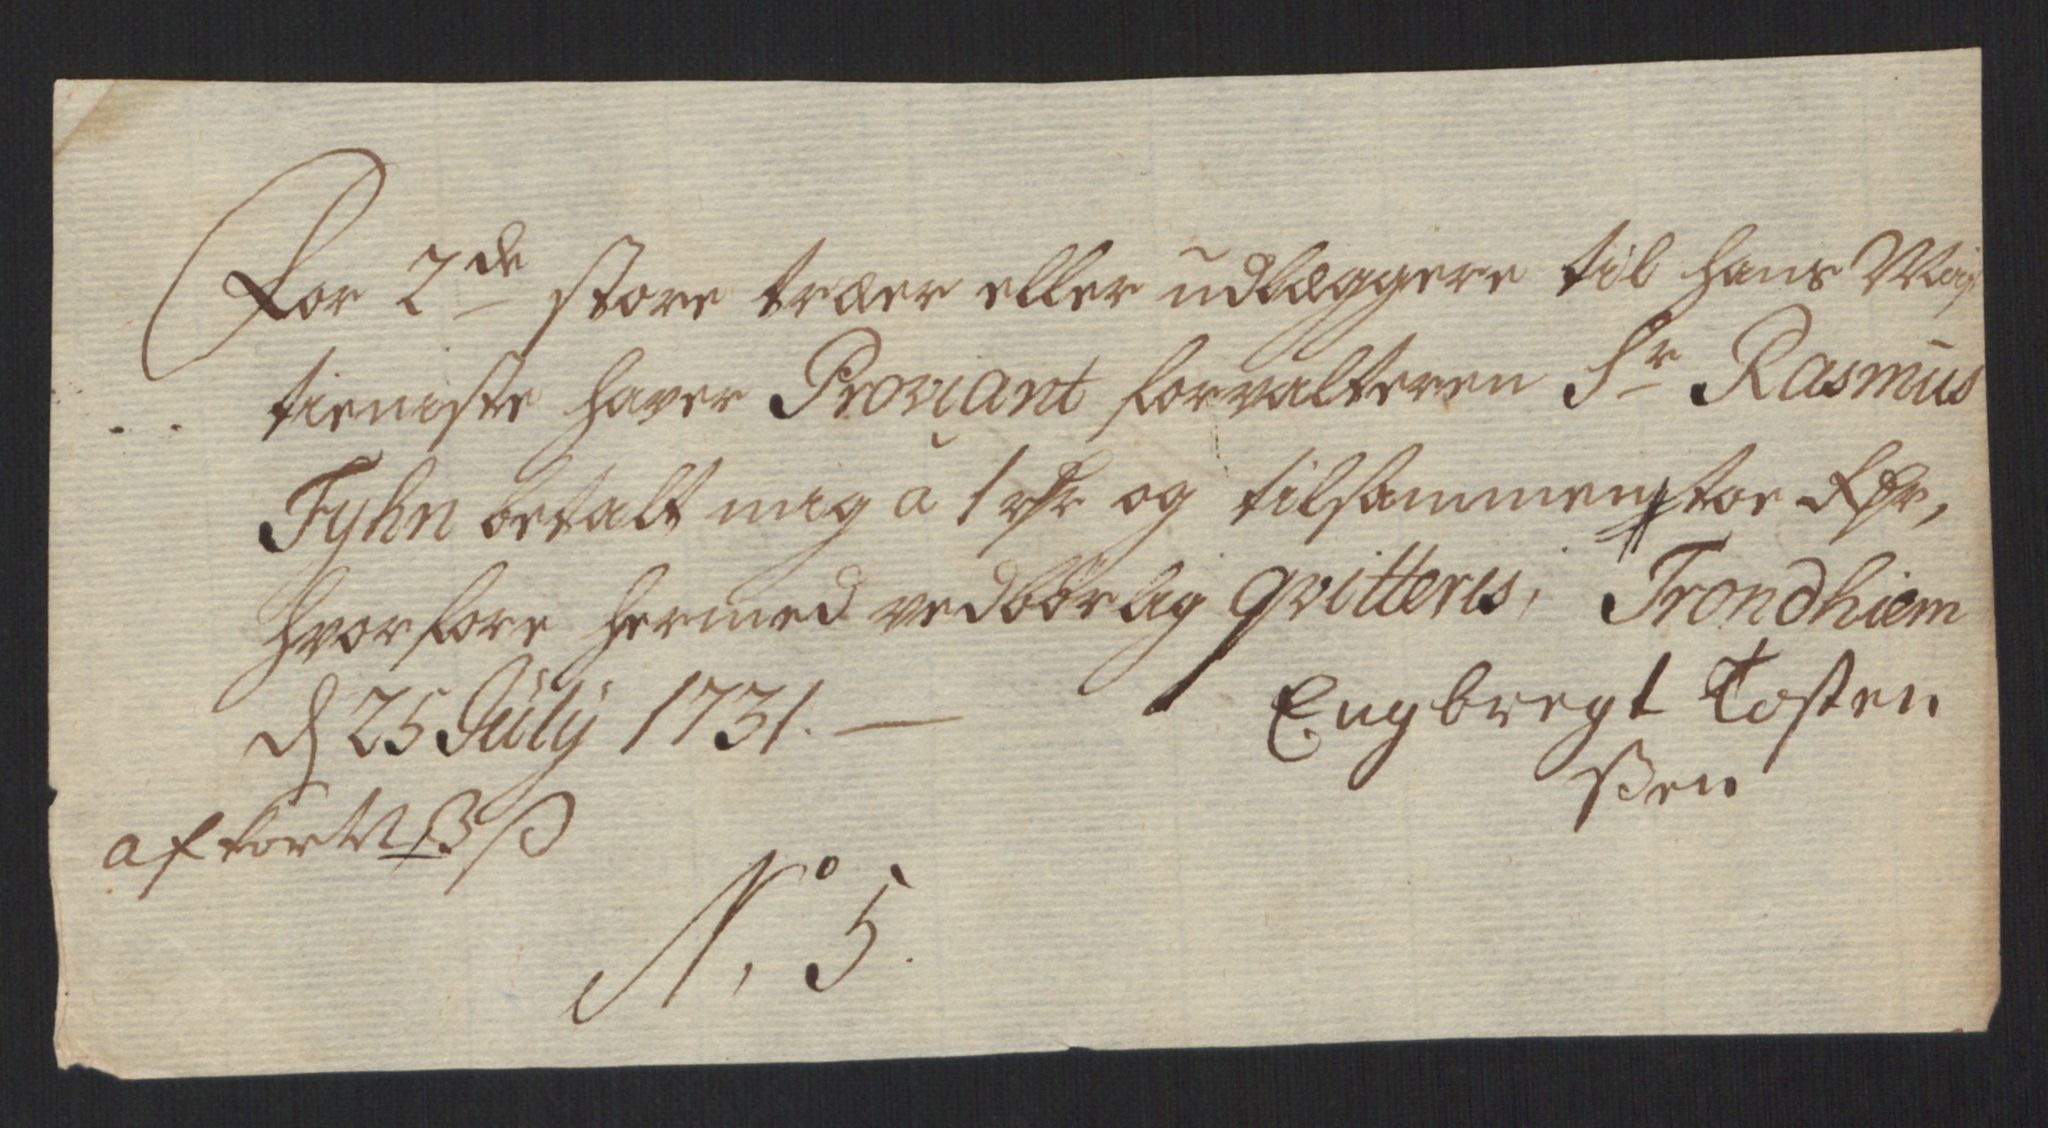 For 2de store træer eller udlæggere til hans May
tieniste haver Proviant forvalteren Sr Rasmus
Fyhn betalt mig a 1 rdr og tilsammen toe Rdr,
hvorfore hermed vedbørlig qvitteris, Trondhiem
d 25 July 1731. —
Engbregt Tosten
ßen
af
No. 5.